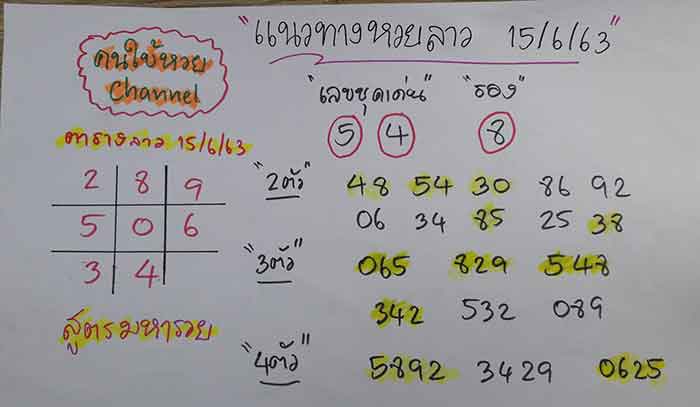 "แนวทางหวยลาว 15/6/63"
คนใบ้หวย
Channel
"เลขชุดเด่น" "รอง"
5 4 8
ตารางลาว 15/6/63
2 8 9
5 0 6
3 4
สูตรมหารวย
"2ตัว" 48 54 30 86 92
06 34 85 25 38
"3ตัว" 065 829 548
342 532 089
"4ตัว" 5892 3429 0625